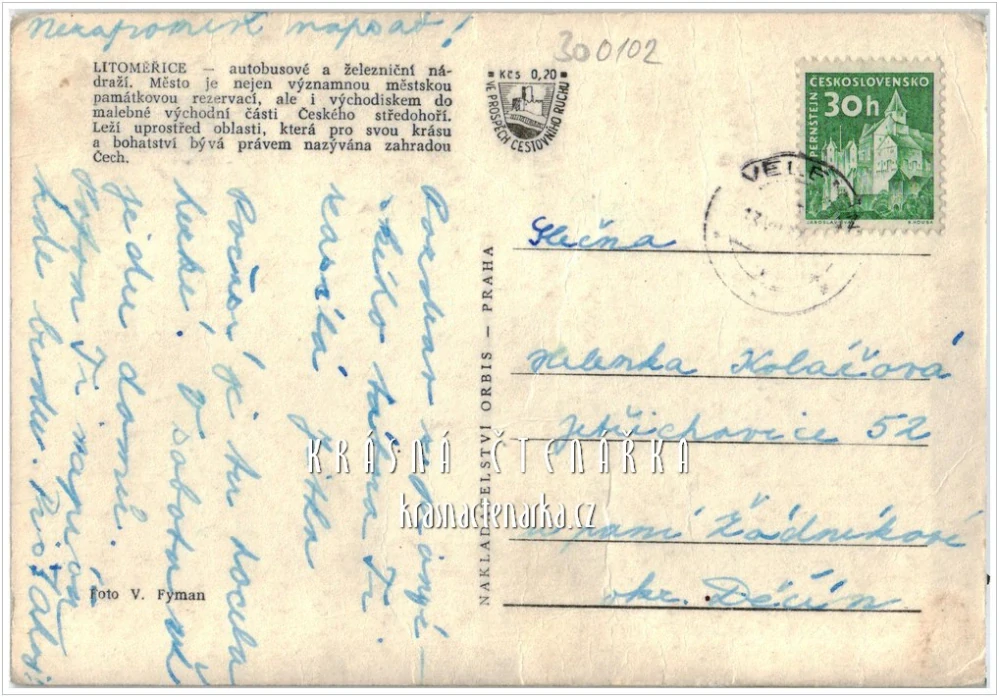 Nezapomeň napsat!
300102
LITOMĚŘICE — autobusové a železniční ná-
draží. Město je nejen významnou městskou
památkovou rezervací, ale i východiskem do
malebné východní části Českého středohoří.
Leží uprostřed oblasti, která pro svou krásu
a bohatství bývá právem nazývána zahradou
Čech.
Kčs 0,20
VE PROSPĚCH CESTOVNÍHO RUCHU
ČESKOSLOVENSKO
30h
PERNŠTEJN
VELE
Pozdrav z
Ti
zasílá
Jitka
Počasí je tu docela
hezké. V sobotu už
jedu domů.
Potom Ti napíši
kde budu.
NAKLADATELSTVÍ ORBIS — PRAHA
Slečna
Helenka Koláčová
Jetřichovice 52
u paní Žádníkové
okr. Děčín
KRÁSNÁ ČTENÁŘKA
krasnactenarka.cz
Foto V. Fyman